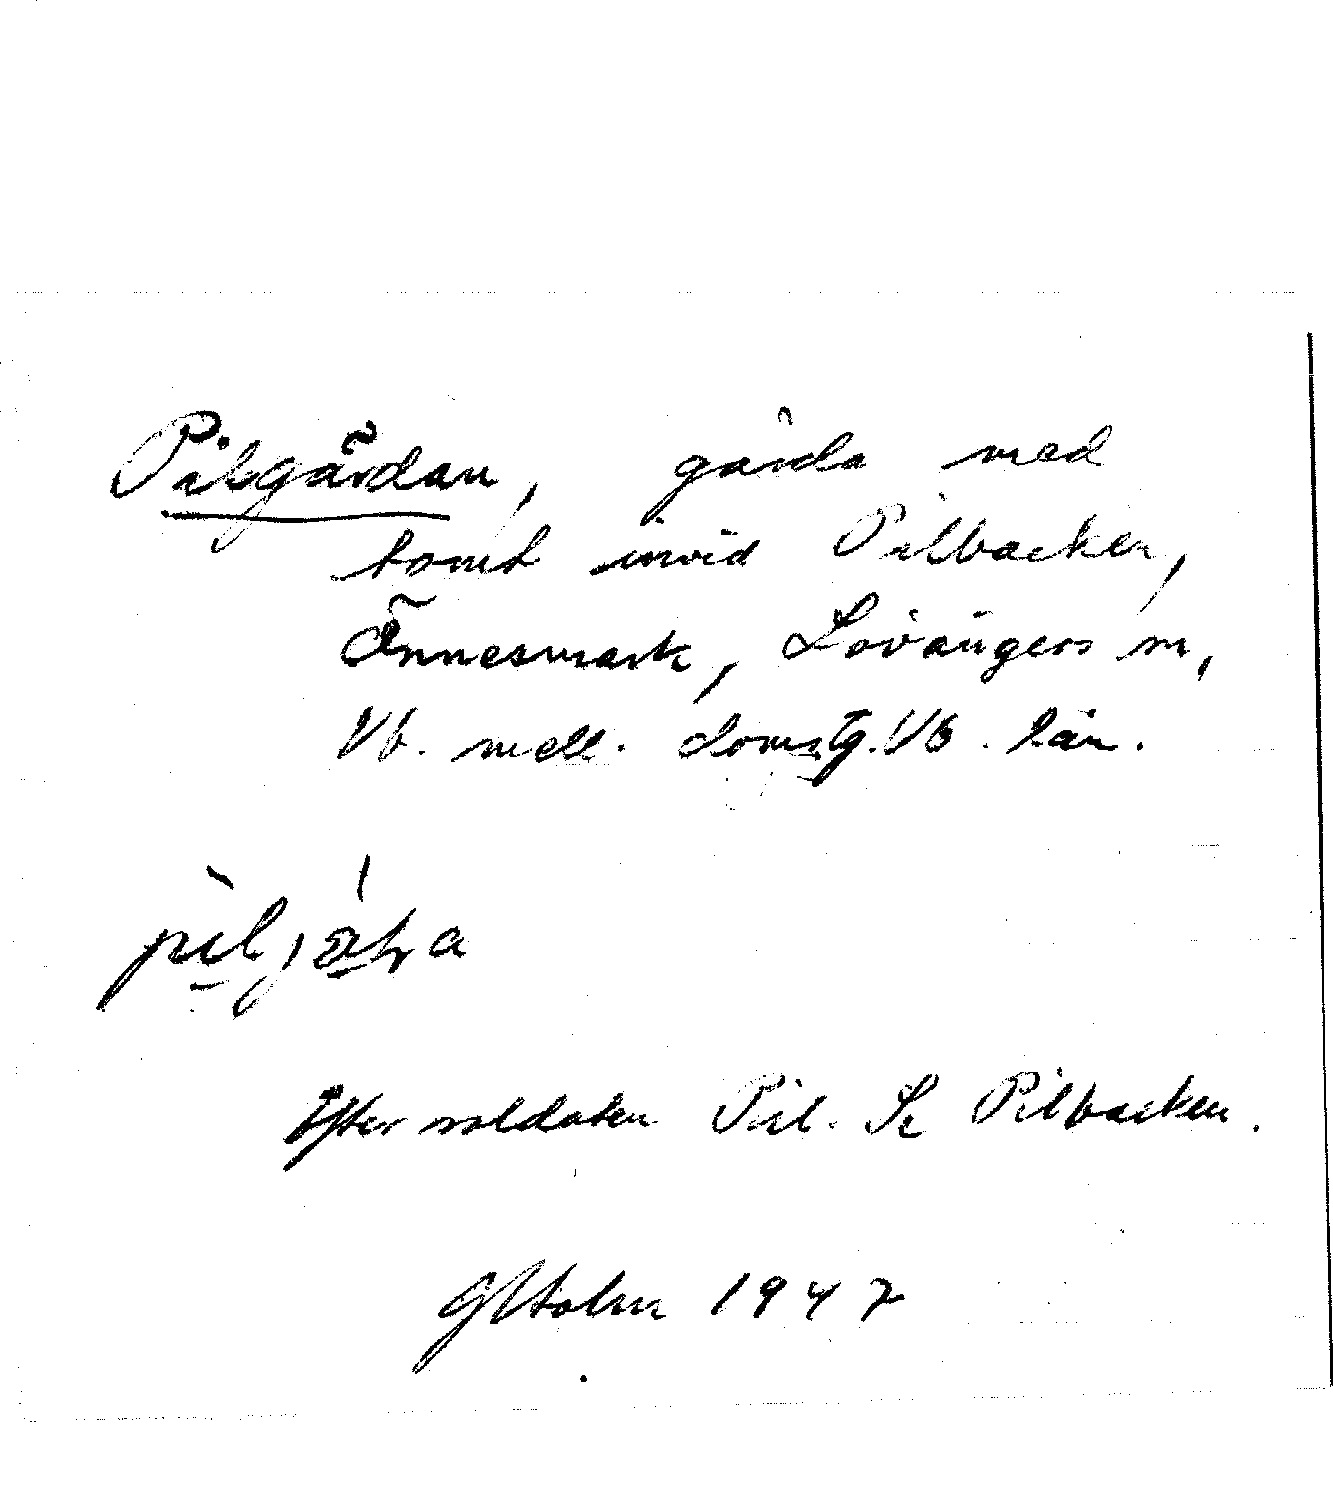 Pilsgårdan, gärda med
tomt invid Pilbacken,
Önnesmark, Lövångers sn,
Vb. mell. domstg. Vb. län.
Efter soldaten Pil. Se Pilbacken.
G Holm 1947